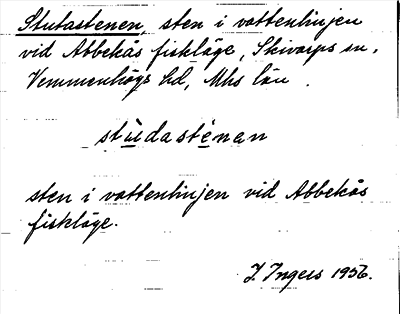 Stutastenen, sten i vattenlinjen
vid Abbekås fiskläge, Skivarps sn,
Vemmenhögs hd, Mhs län.
stùdastènan
sten i vattenlinjen vid Abbekås
fiskläge.
J. Ingers 1956.